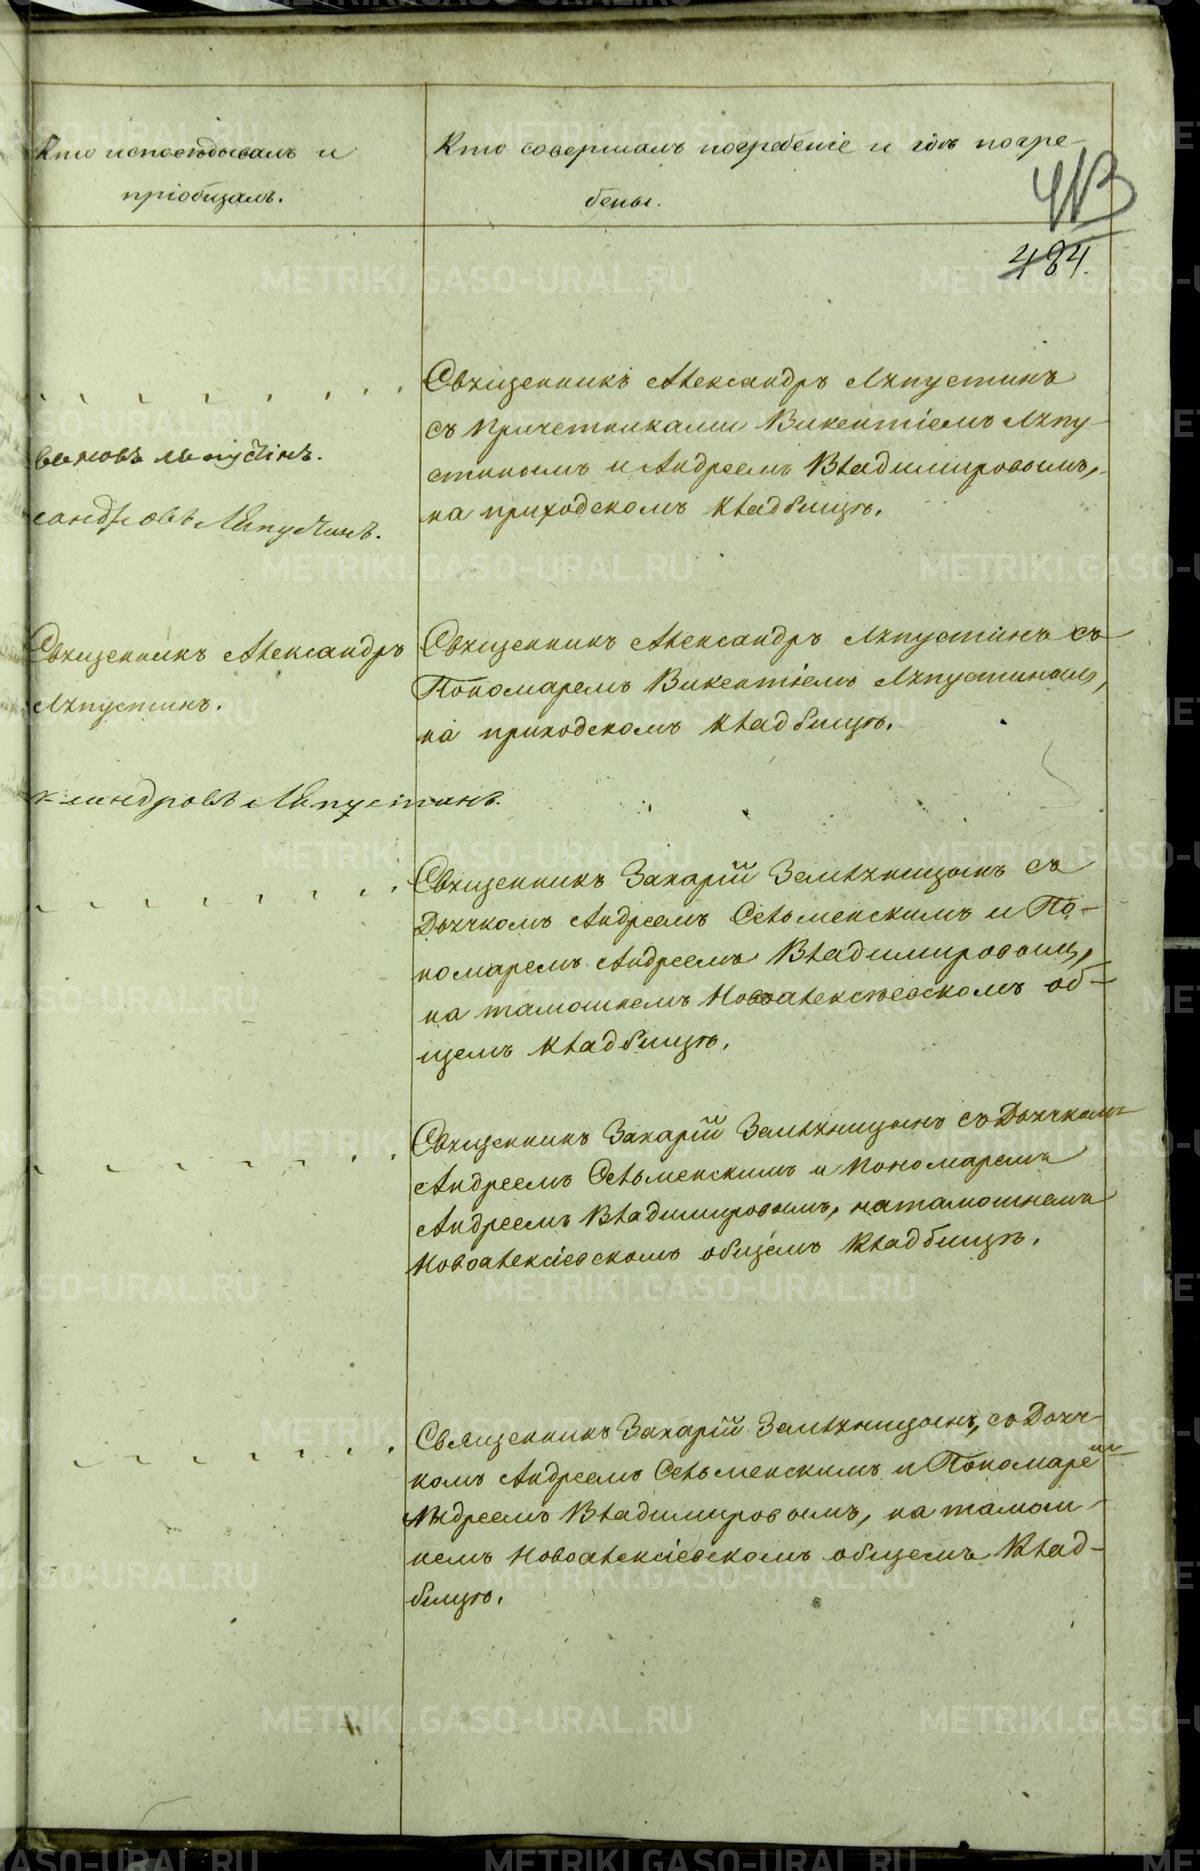 Кто исповѣдывалъ и
пріобщалъ.
Кто совершалъ погребеніе и гдѣ погре-
бены.
413
484.
Священникъ Александръ Ляпустинъ
съ причетниками Викентіемъ Ляпу-
стинымъ и Андреемъ Владимировымъ,
на приходскомъ кладбищѣ.
Ляпустинъ.
сандровъ Ляпустинъ.
Священникъ Александръ
Ляпустинъ.
Священникъ Александръ Ляпустинъ съ
Пономаремъ Викентіемъ Ляпустинымъ,
на приходскомъ кладбищѣ.
ксандровъ Ляпустинъ.
Священникъ Захарій Земляницынъ съ
Дьячкомъ Андреемъ Сельменскимъ и По-
номаремъ Андреемъ Владимировымъ,
на тамошнемъ Новоалексѣевскомъ об-
щемъ кладбищѣ.
Священникъ Захарій Земляницынъ съ Дьячкомъ
Андреемъ Сельменскимъ и пономаремъ
Андреемъ Владимировымъ, на тамошнемъ
Новоалексіевскомъ общемъ кладбищѣ.
Священникъ Захарій Земляницынъ, съ Дьяч-
комъ Андреемъ Сельменскимъ и Пономаремъ
Андреемъ Владимировымъ, на тамош-
немъ Новоалексіевскомъ общемъ Клад-
бищѣ.
METRIKI.GASO-URAL.RU